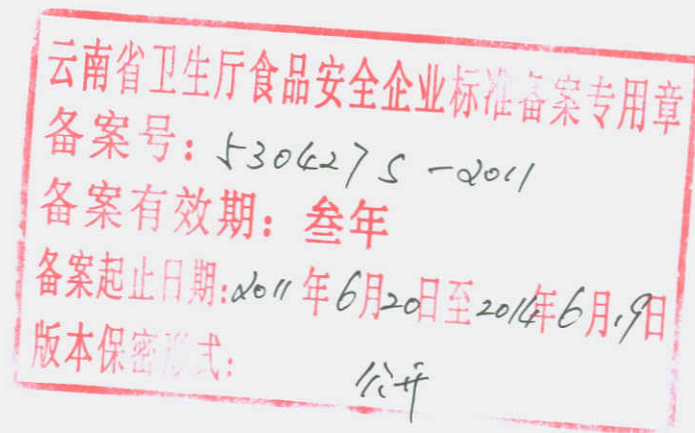 云南省卫生厅食品安全企业标准备案专用章
备案号：530427S-2011
备案有效期：叁年
备案起止日期：2011年6月20日至2014年6月19日
版本保密形式：公开